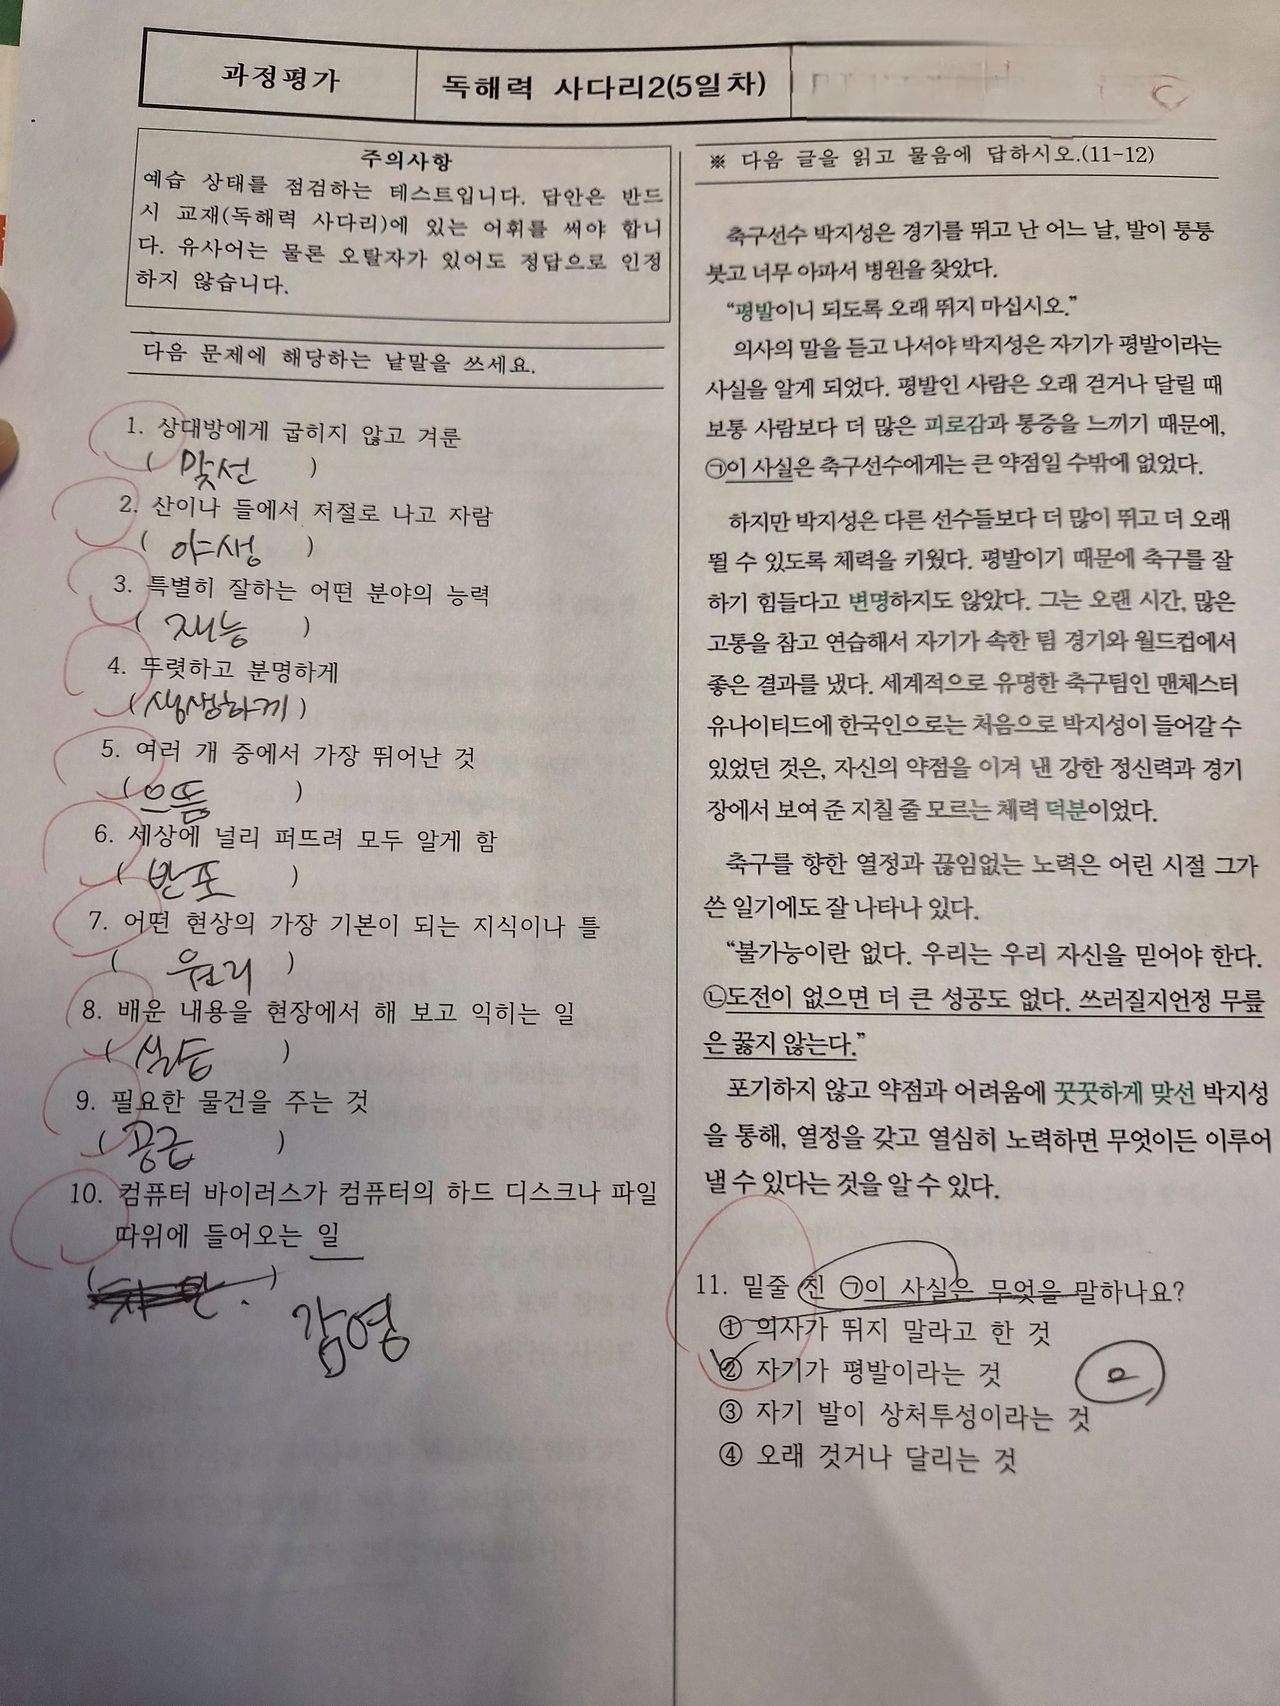 과정평가
독해력 사다리2(5일차)
주의사항
예습 상태를 점검하는 테스트입니다. 답안은 반드
시 교재(독해력 사다리)에 있는 어휘를 써야 합니
다. 유사어는 물론 오탈자가 있어도 정답으로 인정
하지 않습니다.
다음 문제에 해당하는 낱말을 쓰세요.
1. 상대방에게 굽히지 않고 겨룬
( 맞선 )
2. 산이나 들에서 저절로 나고 자람
( 야생 )
3. 특별히 잘하는 어떤 분야의 능력
( 재능 )
4. 뚜렷하고 분명하게
( 생생하게 )
5. 여러 개 중에서 가장 뛰어난 것
( 으뜸 )
6. 세상에 널리 퍼뜨려 모두 알게 함
( 반포 )
7. 어떤 현상의 가장 기본이 되는 지식이나 틀
( 원리 )
8. 배운 내용을 현장에서 해 보고 익히는 일
( 실습 )
9. 필요한 물건을 주는 것
( 공급 )
10. 컴퓨터 바이러스가 컴퓨터의 하드 디스크나 파일
따위에 들어오는 일
( ) 감염
※ 다음 글을 읽고 물음에 답하시오.(11-12)
축구선수 박지성은 경기를 뛰고 난 어느 날, 발이 퉁퉁
붓고 너무 아파서 병원을 찾았다.
“평발이니 되도록 오래 뛰지 마십시오.”
의사의 말을 듣고 나서야 박지성은 자기가 평발이라는
사실을 알게 되었다. 평발인 사람은 오래 걷거나 달릴 때
보통 사람보다 더 많은 피로감과 통증을 느끼기 때문에,
㉠이 사실은 축구선수에게는 큰 약점일 수밖에 없었다.
하지만 박지성은 다른 선수들보다 더 많이 뛰고 더 오래
뛸 수 있도록 체력을 키웠다. 평발이기 때문에 축구를 잘
하기 힘들다고 변명하지도 않았다. 그는 오랜 시간, 많은
고통을 참고 연습해서 자기가 속한 팀 경기와 월드컵에서
좋은 결과를 냈다. 세계적으로 유명한 축구팀인 맨체스터
유나이티드에 한국인으로는 처음으로 박지성이 들어갈 수
있었던 것은, 자신의 약점을 이겨 낸 강한 정신력과 경기
장에서 보여 준 지칠 줄 모르는 체력 덕분이었다.
축구를 향한 열정과 끊임없는 노력은 어린 시절 그가
쓴 일기에도 잘 나타나 있다.
“불가능이란 없다. 우리는 우리 자신을 믿어야 한다.
㉡도전이 없으면 더 큰 성공도 없다. 쓰러질지언정 무릎
은 꿇지 않는다.”
포기하지 않고 약점과 어려움에 꿋꿋하게 맞선 박지성
을 통해, 열정을 갖고 열심히 노력하면 무엇이든 이루어
낼 수 있다는 것을 알 수 있다.
11. 밑줄 친 ㉠이 사실은 무엇을 말하나요?
① 의사가 뛰지 말라고 한 것
② 자기가 평발이라는 것
③ 자기 발이 상처투성이라는 것
④ 오래 것거나 달리는 것